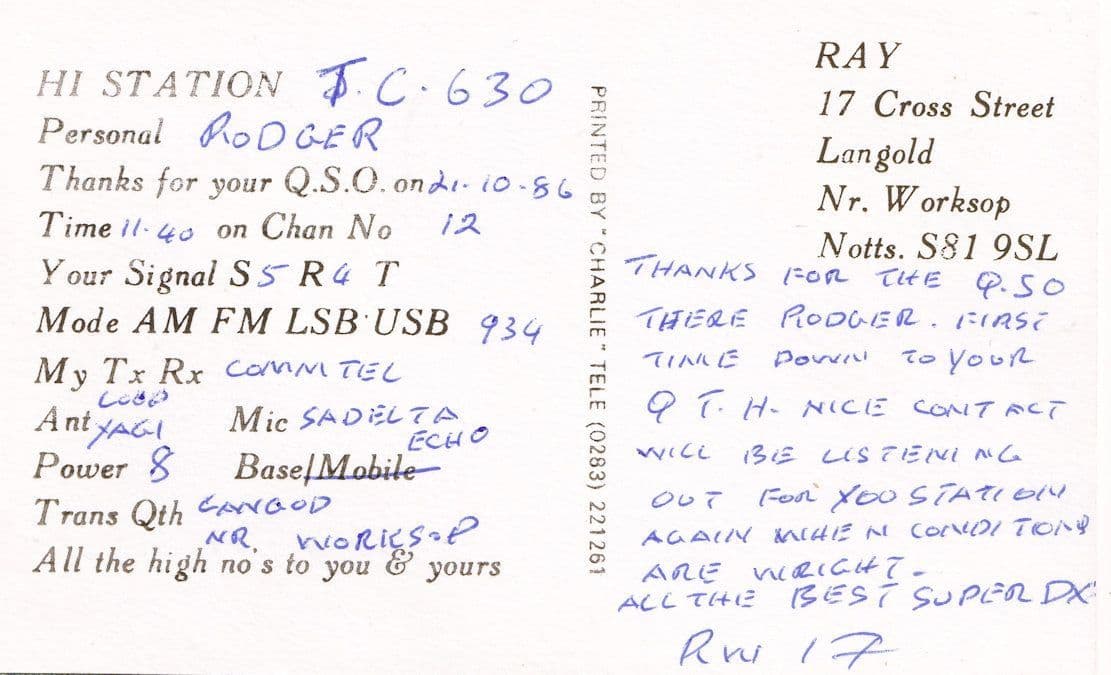 HI STATION J.C.630
Personal RODGER
Thanks for your Q.S.O. on 21-10-86
Time 11-40 on Chan No 12
Your Signal S 5 R 4 T
Mode AM FM LSB USB 934
My Tx Rx COMMTEL
Ant LOOP YAGI Mic SADELTA ECHO
Power 8 Base/Mobile
Trans Qth LANGOD
NR. WORKSOP
All the high no's to you & yours
PRINTED BY "CHARLIE" TELE (0283) 221261
RAY
17 Cross Street
Langold
Nr. Worksop
Notts. S81 9SL
THANKS FOR THE Q.SO
THERE RODGER. FIRST
TIME DOWN TO YOUR
Q T. H. NICE CONTACT
WILL BE LISTENING
OUT FOR YOO STATION
AGAIN WHEN CONDITIONS
ARE WRIGHT.
ALL THE BEST SUPER DX
17